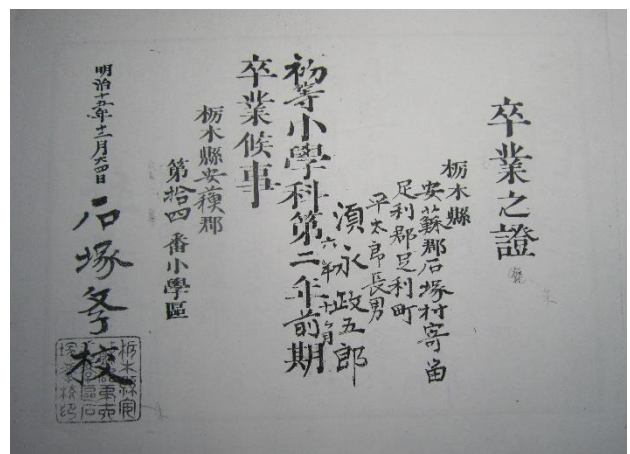 卒業之證
栃木縣
安蘇郡石塚村寄畄
足利郡足利町
平太郎長男
須永政五郎
六年十一月
初等小學科第二年前期
卒業候事
栃木縣安蘓郡
第拾四番小學區
明治十五年十二月廿四日
石塚學校